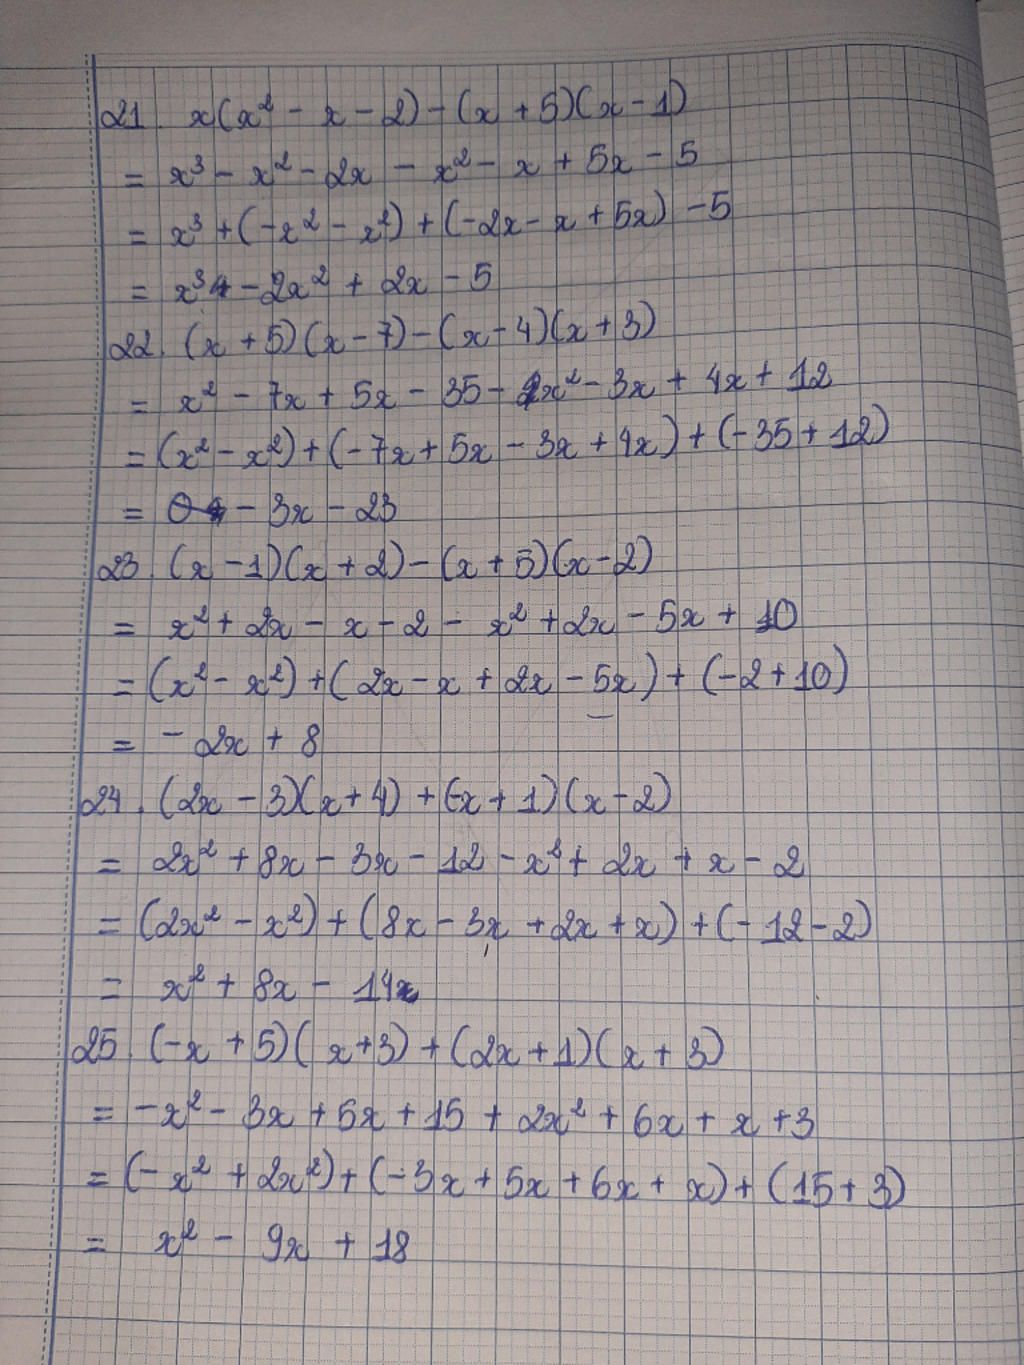 21. x(x² - x - 2) - (x + 5)(x - 1)
= x³ - x² - 2x - x² - x + 5x - 5
= x³ + (-x² - x²) + (-2x - x + 5x) - 5
= x³ - 2x² + 2x - 5
22. (x + 5)(x - 7) - (x - 4)(x + 3)
= x² - 7x + 5x - 35 - x² - 3x + 4x + 12
= (x² - x²) + (-7x + 5x - 3x + 4x) + (-35 + 12)
= - 3x - 23
23. (x - 1)(x + 2) - (x + 5)(x - 2)
= x² + 2x - x - 2 - x² + 2x - 5x + 10
= (x² - x²) + (2x - x + 2x - 5x) + (-2 + 10)
= - 2x + 8
24. (2x - 3)(x + 4) + (-x + 1)(x - 2)
= 2x² + 8x - 3x - 12 - x² + 2x + x - 2
= (2x² - x²) + (8x - 3x + 2x + x) + (- 12 - 2)
= x² + 8x - 14
25. (-x + 5)(x + 3) + (2x + 1)(x + 3)
= -x² - 3x + 5x + 15 + 2x² + 6x + x + 3
= (- x² + 2x²) + (-3x + 5x + 6x + x) + (15 + 3)
= x² - 9x + 18